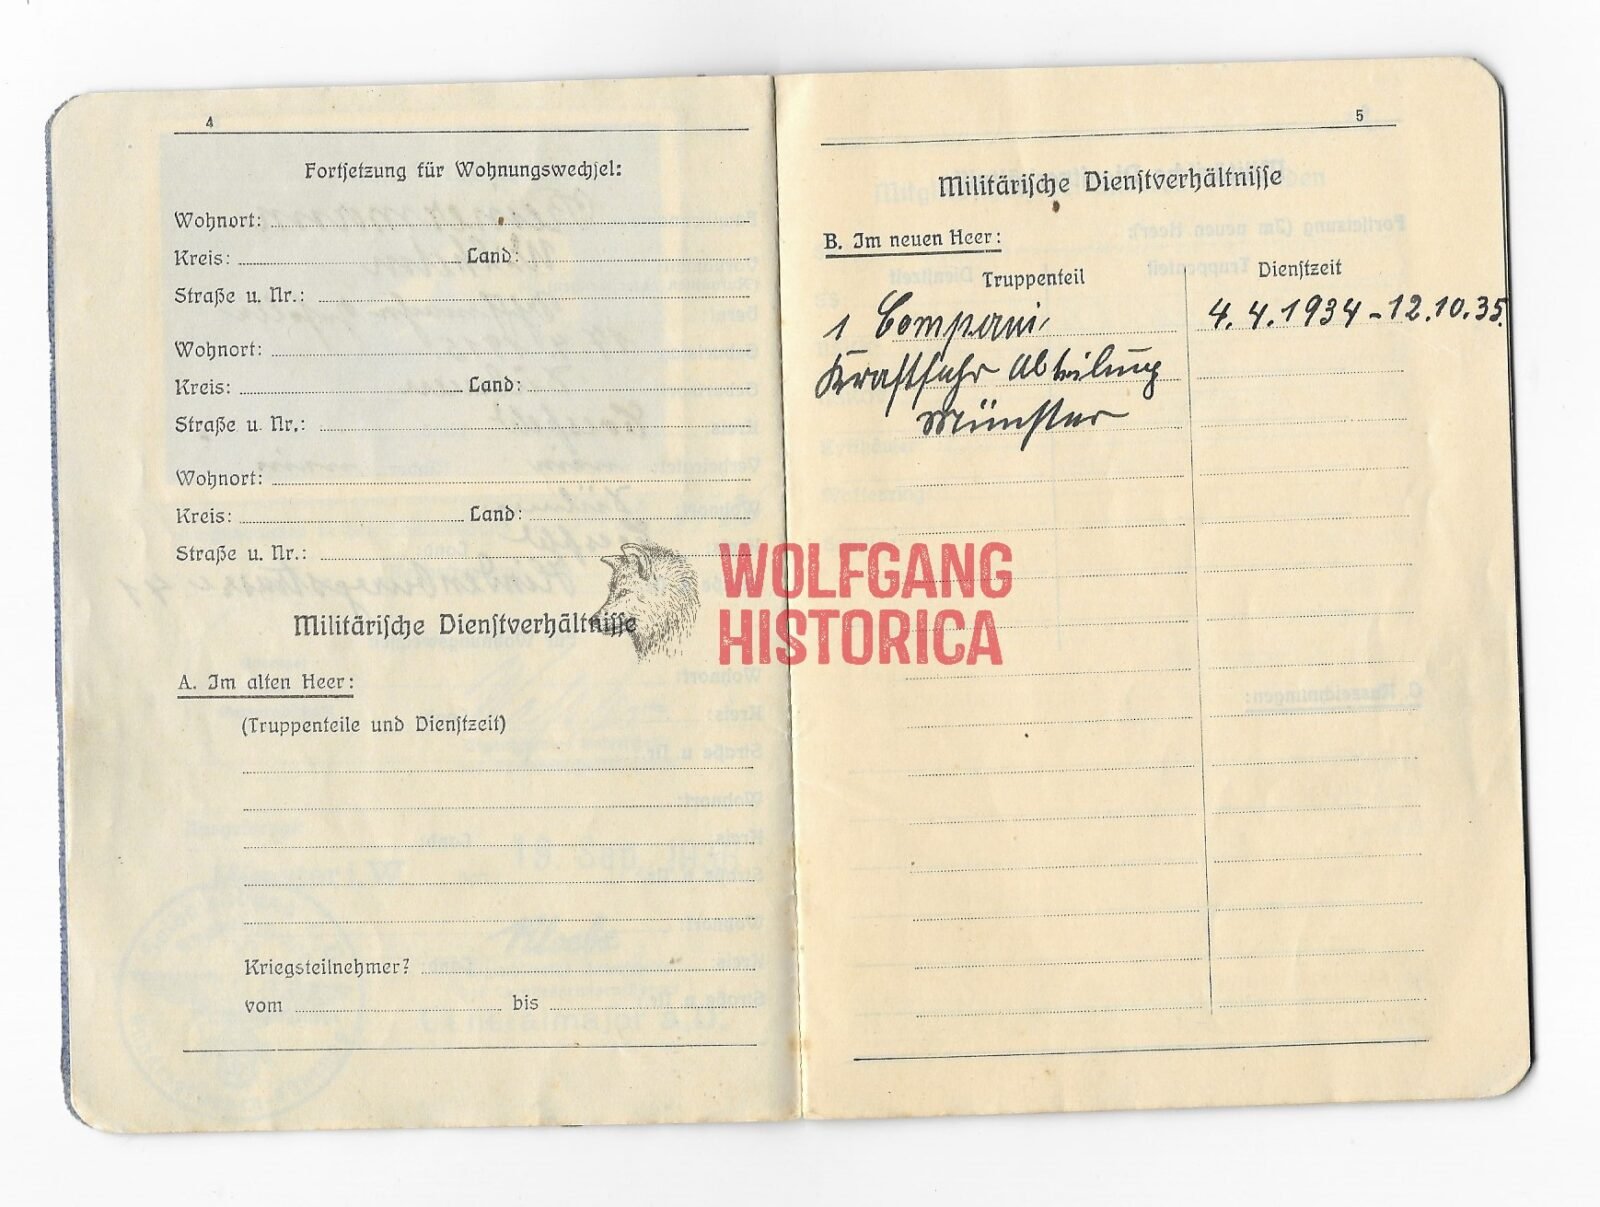 4
Fortsetzung für Wohnungswechsel:
Wohnort:
Kreis: Land:
Straße u. Nr.:
Wohnort:
Kreis: Land:
Straße u. Nr.:
Wohnort:
Kreis: Land:
Straße u. Nr.:
Militärische Dienstverhältnisse
A. Im alten Heer:
(Truppenteile und Dienstzeit)
Kriegsteilnehmer?
vom bis
5
Militärische Dienstverhältnisse
B. Im neuen Heer:
Truppenteil Dienstzeit
1 Compani, 4.4.1934-12.10.35
Kraftfahr Abteilung
Münster
C. Auszeichnungen:
WOLFGANG
HISTORICA